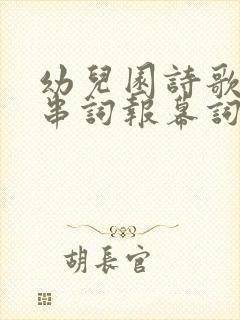 幼兒園詩歌
串詞報幕詞
胡長官